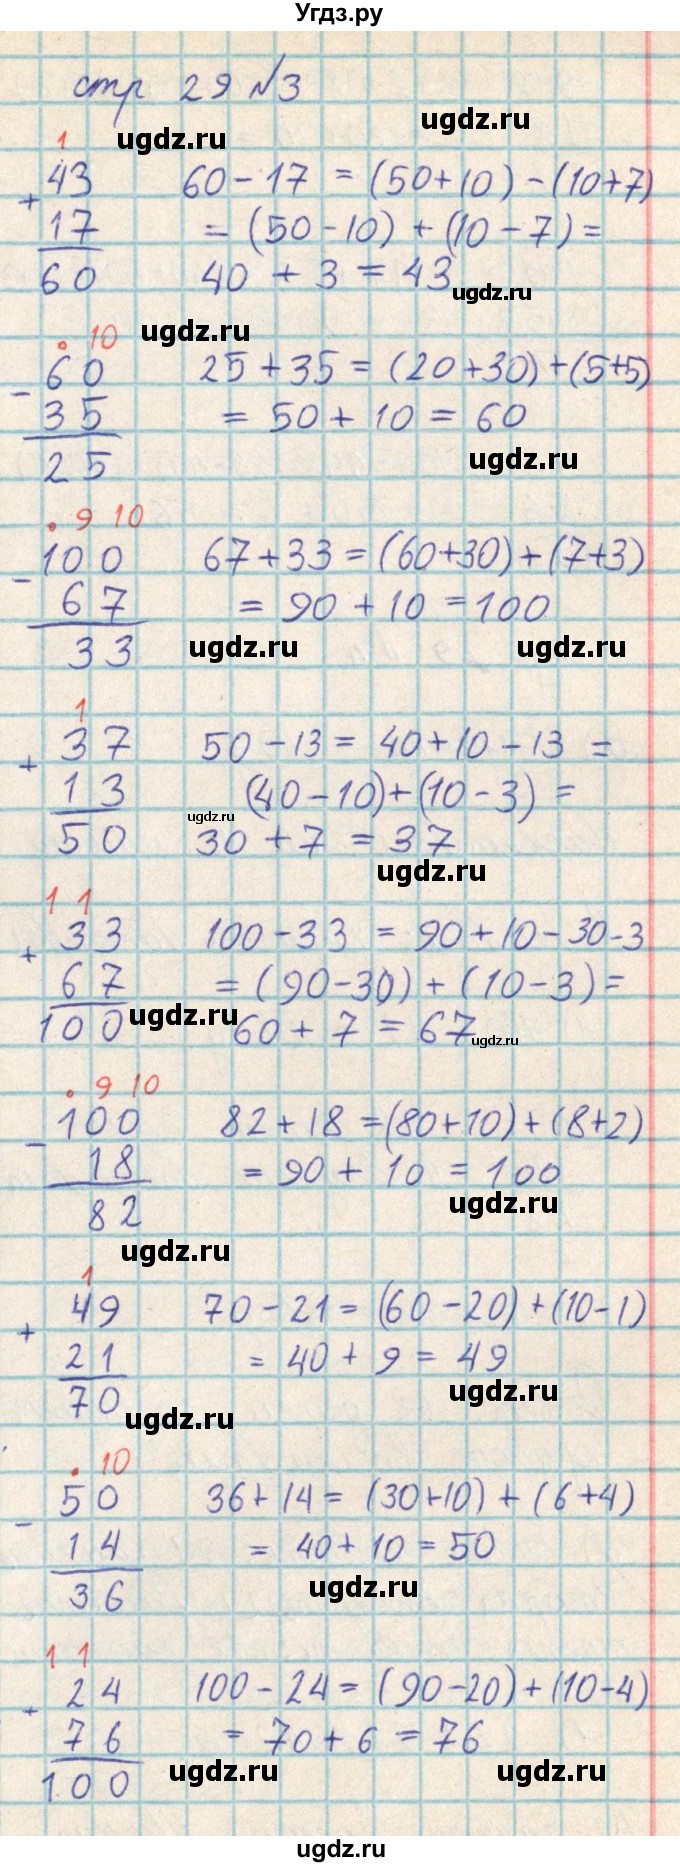 Угдз.ру
стр 29 №3
ugdz.ru
ugdz.ru
1
43 60-17 = (50+10)-(10+7)
+
17 = (50-10)+(10-7)=
60 40 + 3 = 43
ugdz.ru
. 10 ugdz.ru
60 25+35 = (20+30)+(5+5)
-
35 = 50+10 = 60
25 ugdz.ru
. 9 10
100 67+33 = (60+30)+(7+3)
-
67 = 90+10 =100
33 ugdz.ru ugdz.ru
1
37 50-13 = 40+10-13 =
+
13 (40-10)+(10-3) =
ugdz.ru
50 30+7 = 37
ugdz.ru
1 1
33 100-33 = 90+10-30-3
+
67 = (90-30)+(10-3)=
100 ugdz.ru 60+7 = 67
ugdz.ru
. 9 10
100 82+18 =(80+10)+(8+2)
-
18 = 90+10 = 100
82 ugdz.ru
ugdz.ru
1
49 70-21 = (60-20)+(10-1)
+
21 = 40+9 = 49
70 ugdz.ru
ugdz.ru
. 10
50 36+14 = (30+10)+(6+4)
-
14 = 40+10 = 50
36 ugdz.ru
1 1
24 100-24 = (90-20)+(10-4)
+
76 = 70+6 = 76
100 ugdz.ru ugdz.ru
ugdz.ru